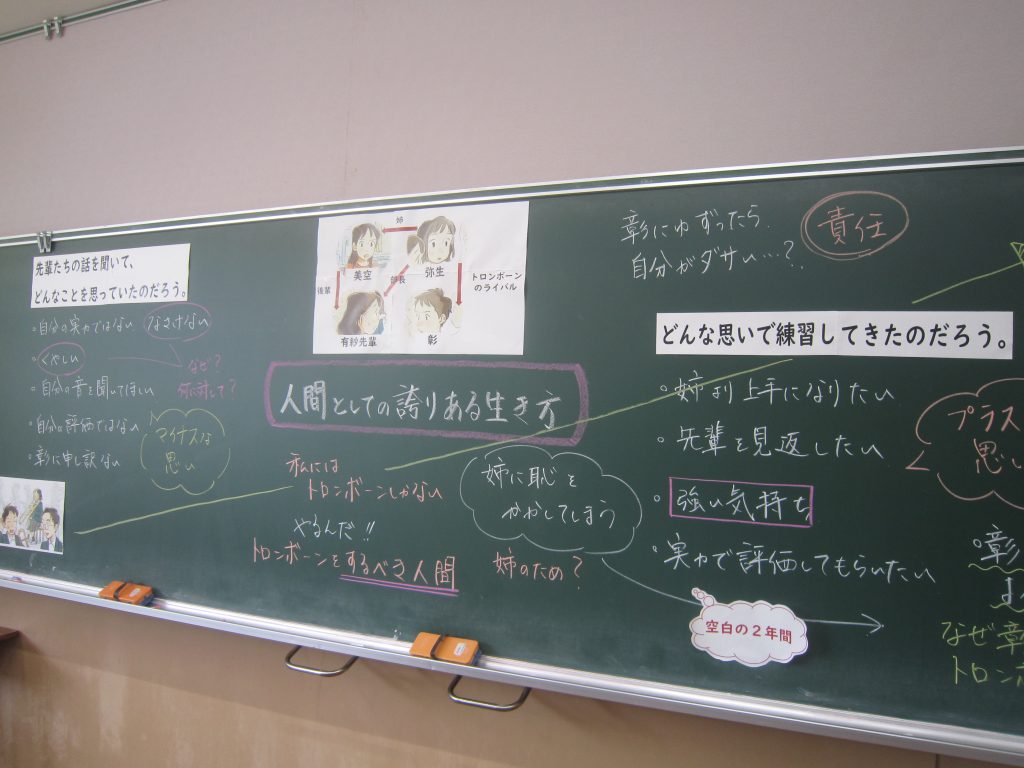 先輩たちの話を聞いて、
どんなことを思っていたのだろう。
・自分の実力ではない なさけない
・くやしい
なぜ?
何に対して?
・自分の音を聞いてほしい
・自分の評価ではない
・彰に申し訳ない
マイナスな
思い
姉
美空
弥生
後輩
部長
トロンボーン
のライバル
有紗先輩
彰
人間としての誇りある生き方
私には
トロンボーンしかない
やるんだ!!
トロンボーンをするべき人間
姉に恥を
かかしてしまう
姉のため?
空白の2年間
彰にゆずったら、
自分がダサい…?
責任
どんな思いで練習してきたのだろう。
・姉より上手になりたい
・先輩を見返したい
・強い気持ち
・実力で評価してもらいたい
プラス
思い
・彰
なぜ彰
トロンボ